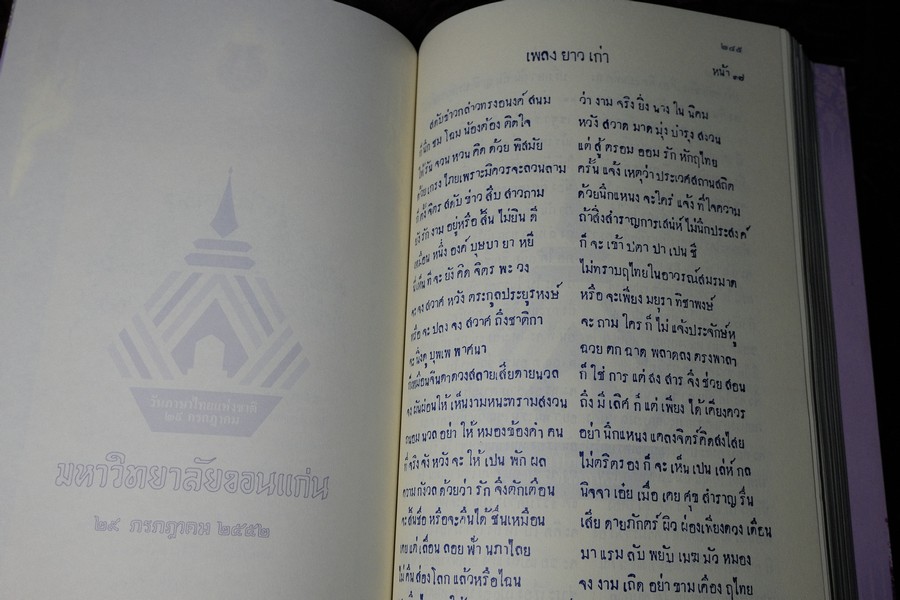 วันภาษาไทยแห่งชาติ
๒๙ กรกฎาคม
มหาวิทยาลัยขอนแก่น
๒๙ กรกฎาคม ๒๕๕๒
๒๔๕
เพลง ยาว เก่า
หน้า ๑๗
สดับข่าวกล่าวทรงอนงค์ สนม ว่า งาม จริง ยิ่ง นาง ใน นิคม
นึก ชม โฉม น้องต้อง ติดใจ หวัง สวาด มาด มุ่ง บำรุง สงวน
จวน หวน คิด ด้วย พิสมัย แต่ สู้ ตรอม ออม รัก หักฤไทย
เกรง ไภยเพราะมิควรจะลวนลาม ครั้น แจ้ง เหตุว่า ประเวศสถานสถิต
ตั้ง จิตร สดับ ข่าว สืบ สาวถาม ด้วยนึกแหนง จะใคร่ แจ้ง ที่ใจความ
รัก งาม อยู่หรือ สิ้น ไม่ยิน ดี ถ้าสิ้งสำราญการเสน่ห์ ไม่นึกประสงค์
เหมือน หนึ่ง องค์ บุษบา ยา หยี ก็ จะ เข้า ปตา ปา เปน ชี
ที่ จะ ยัง คิด จิตร พะ วง ไม่ทราบฤไทยในอาวรณ์สมรมาด
จะ จง สวาศ หวัง ตระกูลประยุรหงษ์ หรือ จะเพี่ยง มยุรา ทิชาพงษ์
หรือ จะ ปลง จง สวาศ ถึงชาติกา จะ ถาม ใคร ก็ ไม่ แจ้งประจักษ์หู
บุพเพ พาศนา ฉวย ตก ฉาด พลาดลง ตรงพาลา
เหมือนจินดาดวงสลายเสียดายนวล ก็ ใช่ การ แต่ สง สาร จึ่ง ช่วย สอน
จง ผันผ่อนให้ เห็นงามหนะทรามสงวน ถึง มี เลิศ ก็ แต่ เพียง ได้ เคียงควร
ถนอม นวล อย่า ให้ หมองข้องคำ คน อย่า นึกแหนง แคลงจิตร์คิดสงไสย
ที่ จริง จัง หวัง จะ ให้ เปน พัก ผล ไม่ตริตร อง ก็ จะ เห็น เปน เล่ห์ กล
ความ กังวล ด้วยว่า รัก จึ่งตักเตือน นิจจา เอ๋ย เมื่อ เคย ศุข สำราญ รื่น
จะ สิ้นชื่อ หรือจะคืนได้ ชื่นเหมือน เสีย ดายภักตร์ ผิว ผ่องเพียงดวง เดือน
เคย แต่ เลื่อน ลอย ฟ้า นภาไลย มา แรม ลับ พยับ เมฆ มัว หมอง
ส่องโลก แล้วหรือไฉน จง งาม เถิด อย่า ขาม เคือง ฤไทย